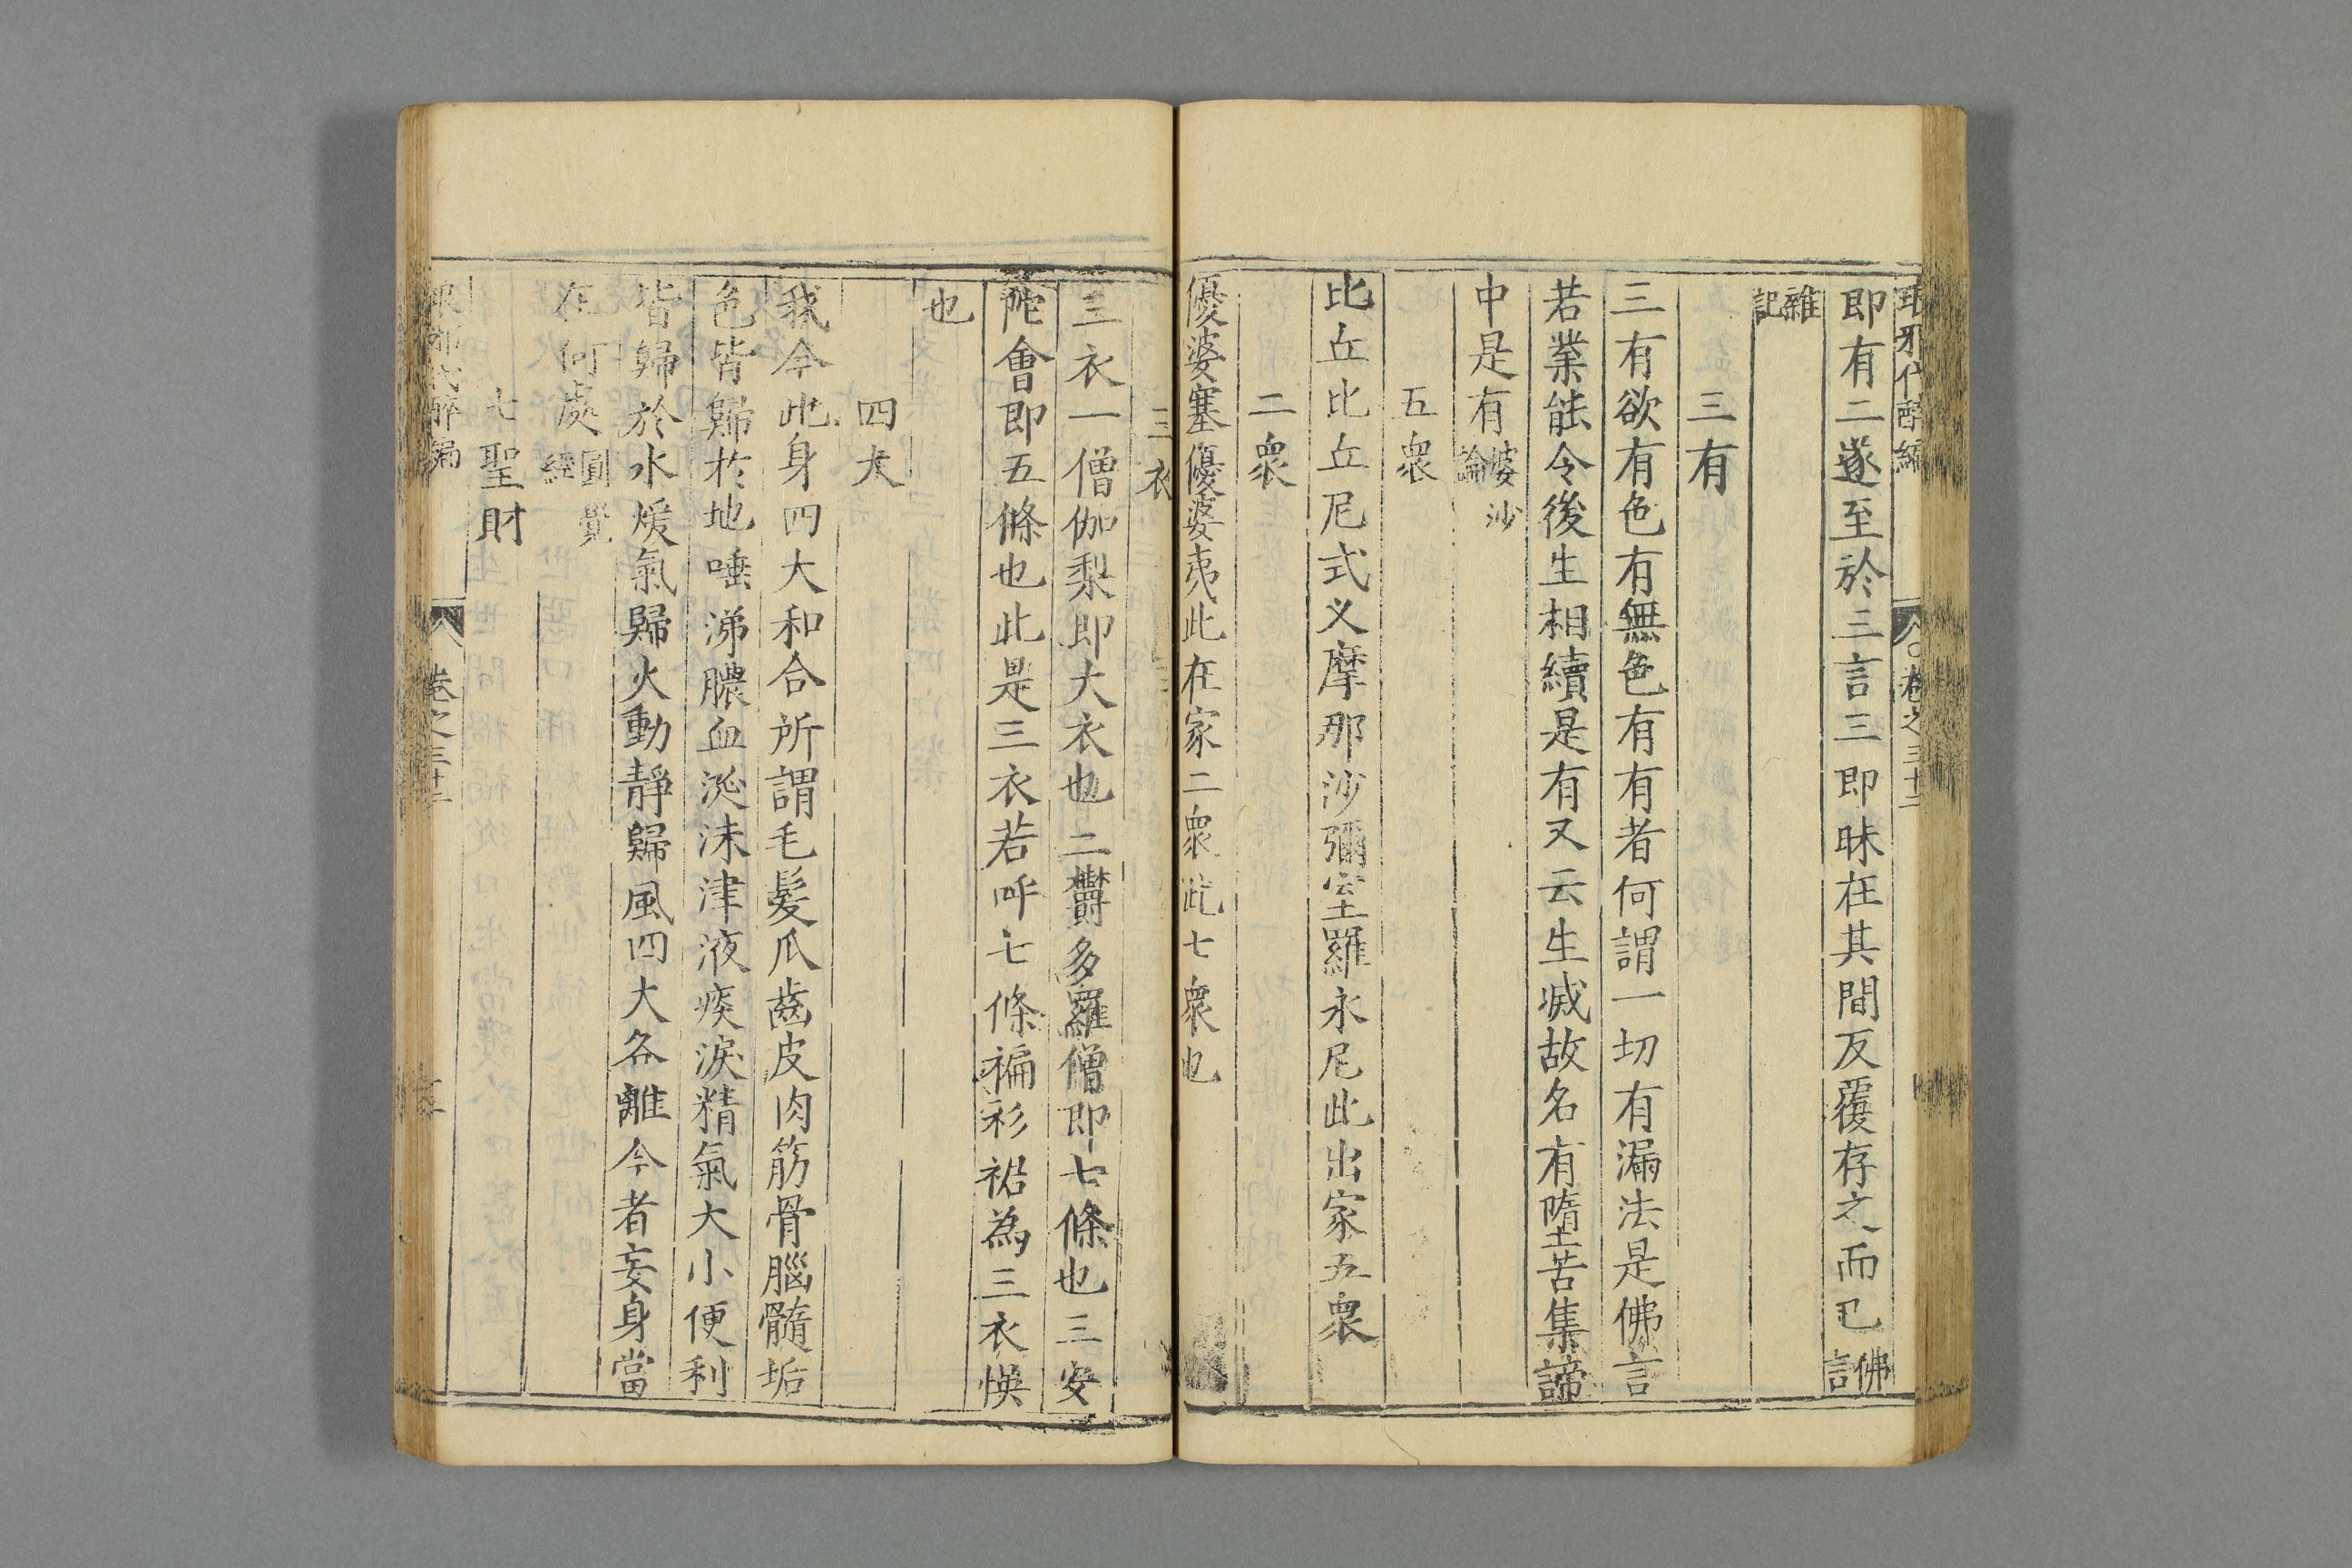 琅邪代醉編 卷之三十二
即有二遂至於三言三即昧在其間反覆存之而已佛言
雜記
三有
三有欲有色有無色有有者何謂一切有漏法是佛言
若業能令後生相續是有又云生滅故名有墮苦集諦
中是有婆沙論
五衆
比丘比丘尼式义摩那沙彌室羅永尼此出家五衆
二衆
優婆塞優婆夷此在家二衆此七衆也
三衣
三衣一僧伽梨即大衣也二欝多羅僧即七條也三安
陀會即五條也此是三衣若呼七條褊衫裙為三衣悞
也
四大
我今此身四大和合所謂毛髮爪齒皮肉筋骨腦髓垢
色皆歸於地唾涕膿血涎沫津液痰淚精氣大小便利
皆歸於水煖氣歸火動靜歸風四大各離今者妄身當
在何處圓覺經
七聖財
代醉編 卷之三十二